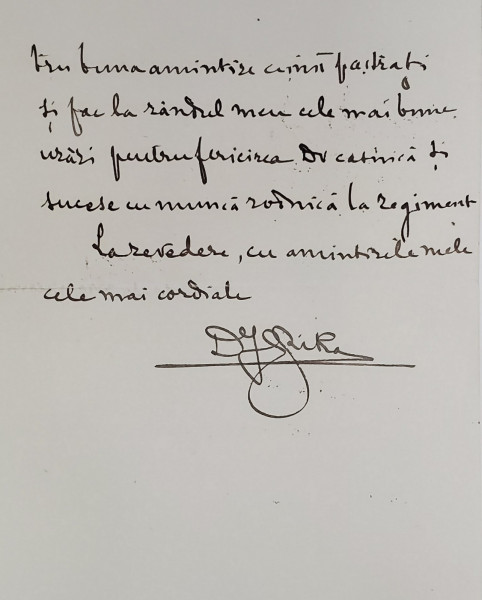 tru buna amintire ce-mi păstrați
și fac la rândul meu cele mai bune
urări pentru fericirea Dv casnică și
succese cu muncă rodnică la regiment
La revedere, cu amintirile mele
cele mai cordiale